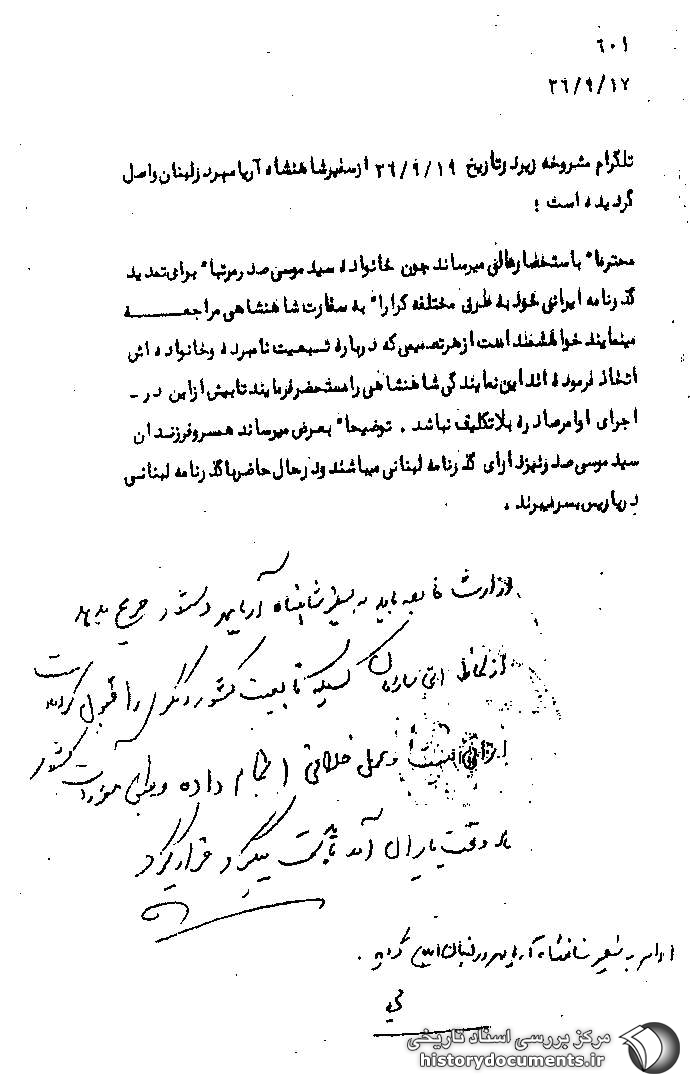 ۶۰۱
۳۶/۹/۱۷
تلگرام مشروحه زیر در تاریخ ۳۶/۹/۱۹ از سفیر شاهنشاه آریامهر در لبنان واصل
گردیده است :
محترما" باستحضار عالی میرساند چون خانواده سید موسی صدر مرتبا" برای تمدید
گذرنامه ایرانی خود به طرق مختلفه کرارا" به سفارت شاهنشاهی مراجعـــــه
مینمایند خواهشمند است از هر تصمیمی که درباره تبعیت نامبرده و خانواده اش
اتخاذ فرموده اند این نمایندگی شاهنشاهی را مستحضر فرمایند تا بیش از این در -
اجرای اوامر صادره بلاتکلیف نباشد . توضیحا" بعرض میرساند همسر و فرزندان
سید موسی صدر نیز دارای گذرنامه لبنانی میباشند و در حال حاضر با گذرنامه لبنانی
در پاریس بسر میبرند .
وزارت خارجه باید به سفیر شاهنشاه آریامهر دستور صریح بدهد
از لحاظ کسیکه تابعیت کشور دیگری را قبول کرده است
ایرانی نیست و عمل خلافی انجام داده و برابر مقررات کشور
هر وقت بایران آمد تحت پیگرد قرار گیرد
اوامر به سفیر شاهنشاه آریامهر در لبنان ابلاغ گردید .
مرکز بررسی اسناد تاریخی
historydocuments.ir